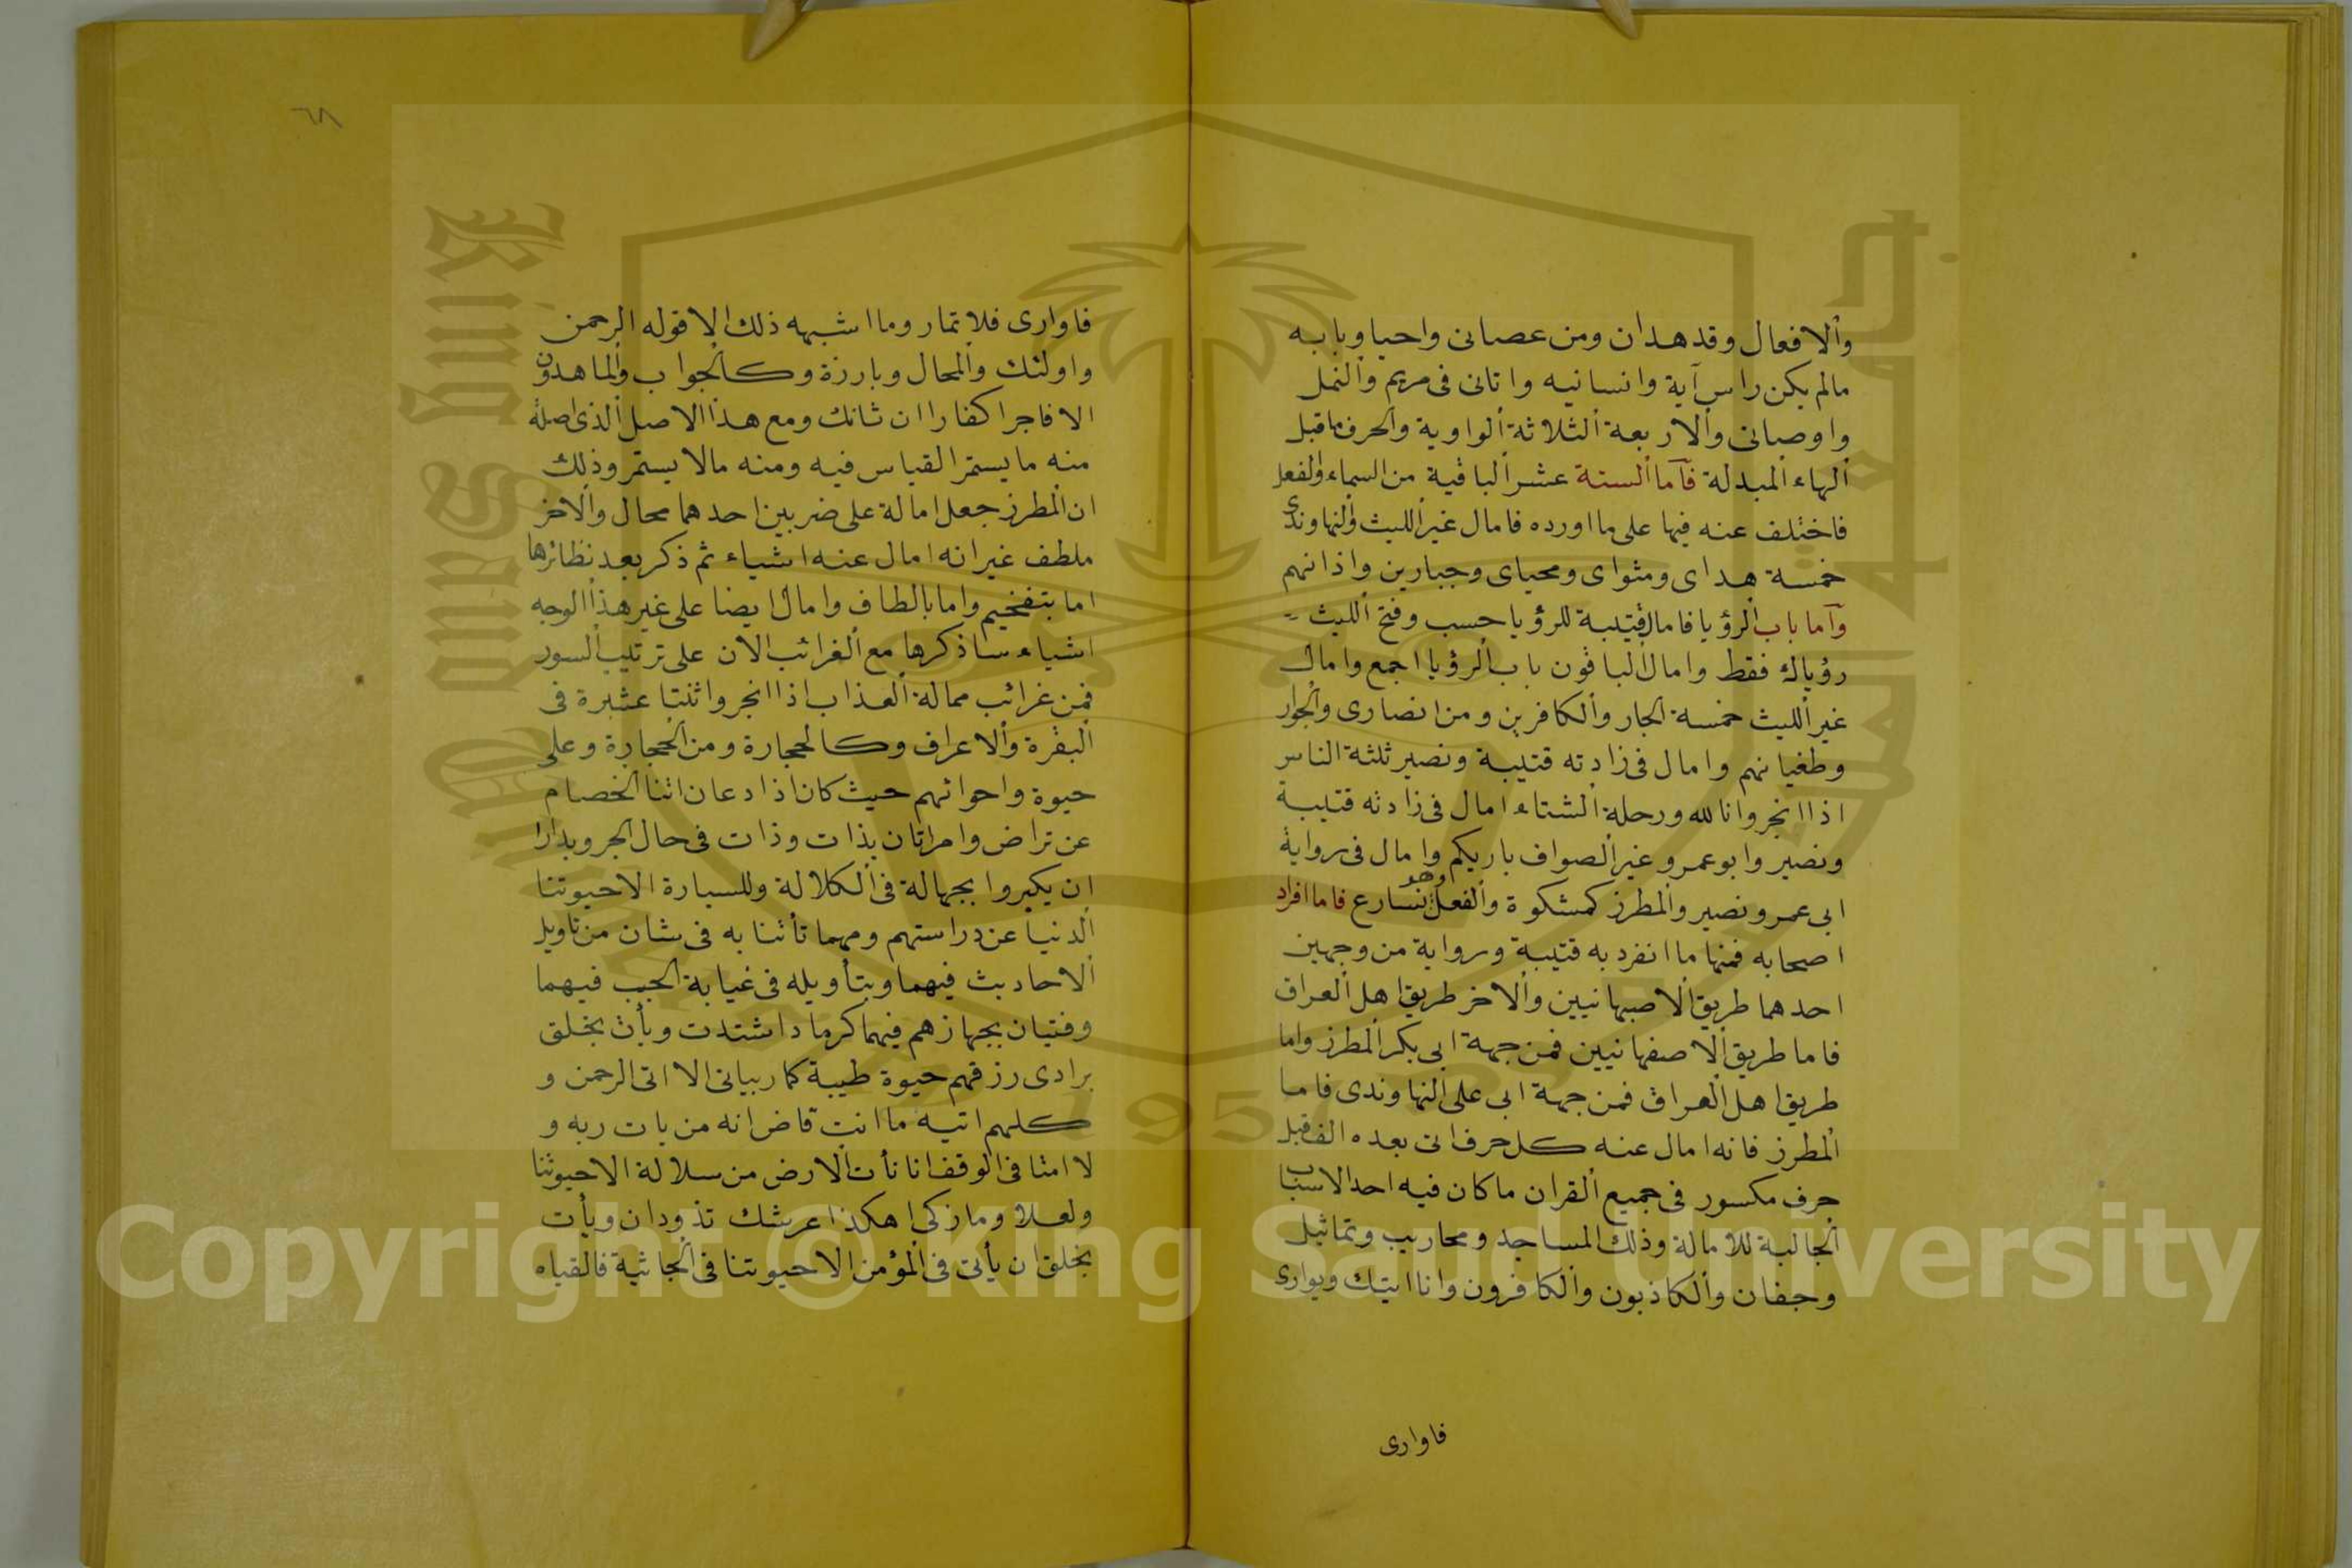 والافعال وقد هدان ومن عصانى واحيا وبابه
مالم يكن راس آية وانسانيه واتانى فى مريم والنمل
واوصانى والاربعة الثلاثة الواوية والحرف ماقبل
الهاء المبدلة فآما الستة عشر الباقية من السماء والفعل
فاختلف عنه فيها على ما اورده فامال غير الليث والنهاوندى
خمسة هداى ومثواى ومحياى وجبارين واذانهم
وآما باب الرؤيا فامال قتيبة للرؤيا حسب وفتح الليث
رؤياك فقط وامال الباقون باب الرؤيا اجمع وامال
غير الليث خمسة الجار والكافرين ومن انصارى والجوار
وطغيانهم وامال فى زادته قتيبة ونصير ثلثة الناس
اذا انجر وانا لله ورحلة الشتاء امال فى زادته قتيبة
ونصير وابو عمرو غير الصواف باريكم وامال فى رواية
ابى عمرو نصير والمطرز كمشكوة والفعل وهو نسارع فاما افراد
اصحابه فمنها ما انفرد به قتيبة ورواية من وجهين
احدهما طريق الاصبهانيين والاخر طريق اهل العراق
فاما طريق الاصفهانيين فمن جهة ابى بكر المطرز واما
طريق اهل العراق فمن جهة ابى على النهاوندى فاما
المطرز فانه امال عنه كل حرف اتى بعده الف قبل
حرف مكسور فى جميع القران ما كان فيه احد الاسباب
الجالبة للامالة وذلك المساجد ومحاريب وتماثيل
وجفان والكاذبون والكافرون وانا اتيك ويوارى
فاوارى
٦٨
فاوارى فلا تمار وما اشبهه ذلك الا قوله الرحمن
واولئك والمحال وبارزة وكالجواب والماهدون
الا فاجرا كفارا ان شانك ومع هذا الاصل الذى اصله
منه ما يستمر القياس فيه ومنه مالا يستمر وذلك
ان المطرز جعل امالة على ضربين احدهما محال والاخر
ملطف غير انه امال عنه اشياء ثم ذكر بعد نظائرها
اما بتفخيم واما بالطاف وامال ايضا على غير هذا الوجه
اشياء ساذكرها مع الغرائب الان على ترتيب السور
فمن غرائب ممالة العذاب اذا انجر واثنتا عشرة فى
البقرة والاعراف وكالحجارة ومن الحجارة وعلى
حيوة واحوائهم حيث كان اذا دعان اثنا الخصام
عن تراض وامراتان بذات وذات فى حال الجر وبدارا
ان يكبروا بجهالة فى الكلالة وللسيارة الا حيوتنا
الدنيا عن دراستهم ومهما تأتنا به فى شان من تاويل
الاحاديث فيهما وبتأويله فى غيابة الجب فيهما
وفتيان بجهازهم فيهما كرماد اشتدت ويأت بخلق
برادى رزقهم حيوة طيبة كما ربيانى الا اتى الرحمن و
كلهم اتيه ما انت قاض انه من يات ربه و
لا امتا فى الوقف انا نأت الارض من سلالة الا حيوتنا
ولعلا وما زكى اهكذا عرشك تذودان ويأت
بخلق ان يأتى فى المؤمن الا حيوتنا فى الجاثية فالقياه